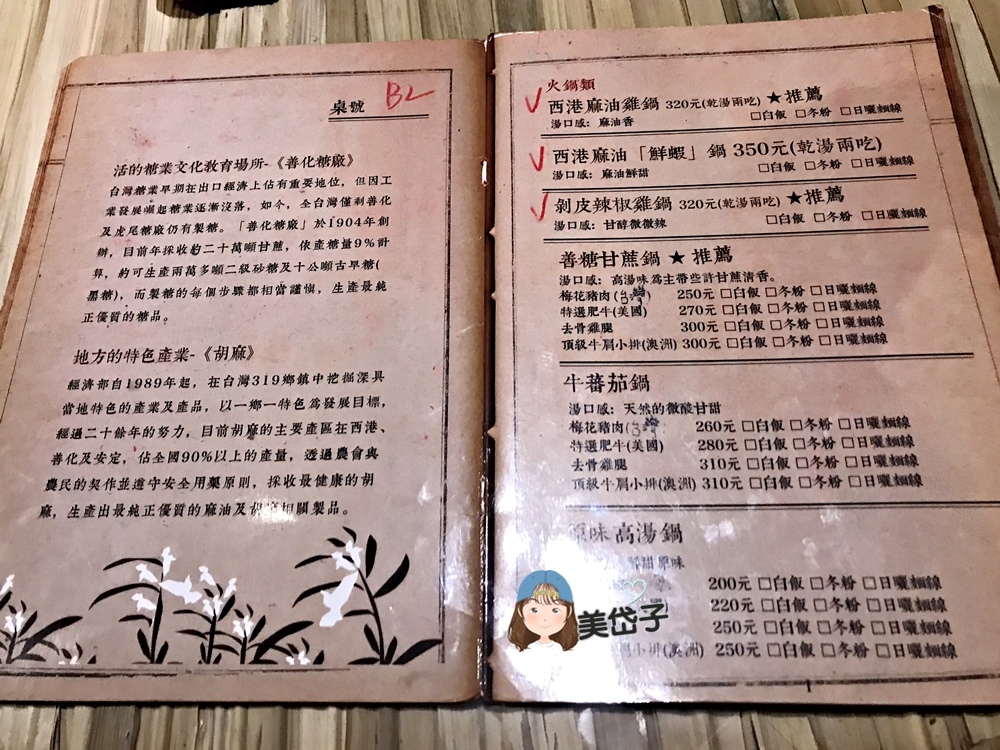 桌號 B2
活的糖業文化教育場所-《善化糖廠》
台灣糖業早期在出口經濟上佔有重要地位，但因工
業發展崛起糖業逐漸沒落，如今，全台灣僅剩善化
及虎尾糖廠仍有製糖。「善化糖廠」於1904年創
辦，目前年採收約二十萬噸甘蔗，依產糖量9%計
算，約可生產兩萬多噸二級砂糖及十公噸古早糖(
黑糖)，而製糖的每個步驟都相當謹慎，生產最純
正優質的糖品。
地方的特色產業-《胡麻》
經濟部自1989年起，在台灣319鄉鎮中挖掘深具
當地特色的產業及產品，以一鄉一特色為發展目標，
經過二十餘年的努力，目前胡麻的主要產區在西港、
善化及安定，佔全國90%以上的產量，透過農會與
農民的契作並遵守安全用藥原則，採收最健康的胡
麻，生產出最純正優質的麻油及胡麻相關製品。
火鍋類
西港麻油雞鍋 320元(乾湯兩吃) ★推薦
湯口感：麻油香 □白飯 □冬粉 □日曬麵線
西港麻油「鮮蝦」鍋 350元(乾湯兩吃)
湯口感：麻油鮮甜 □白飯 □冬粉 □日曬麵線
剝皮辣椒雞鍋 320元(乾湯兩吃) ★推薦
湯口感：甘醇微微辣 □白飯 □冬粉 □日曬麵線
善糖甘蔗鍋 ★推薦
湯口感：高湯味為主帶些許甘蔗清香。
梅花豬肉(台灣) 250元 □白飯 □冬粉 □日曬麵線
特選肥牛(美國) 270元 □白飯 □冬粉 □日曬麵線
去骨雞腿 300元 □白飯 □冬粉 □日曬麵線
頂級牛肩小排(澳洲) 300元 □白飯 □冬粉 □日曬麵線
牛蕃茄鍋
湯口感：天然的微酸甘甜
梅花豬肉(台灣 260元 □白飯 □冬粉 □日曬麵線
特選肥牛(美國) 280元 □白飯 □冬粉 □日曬麵線
去骨雞腿 310元 □白飯 □冬粉 □日曬麵線
頂級牛肩小排(澳洲) 310元 □白飯 □冬粉 □日曬麵線
原味高湯鍋
鮮甜原味
200元 □白飯 □冬粉 □日曬麵線
220元 □白飯 □冬粉 □日曬麵線
250元 □白飯 □冬粉 □日曬麵線
小排(澳洲) 250元 □白飯 □冬粉 □日曬麵線
美岱子
1